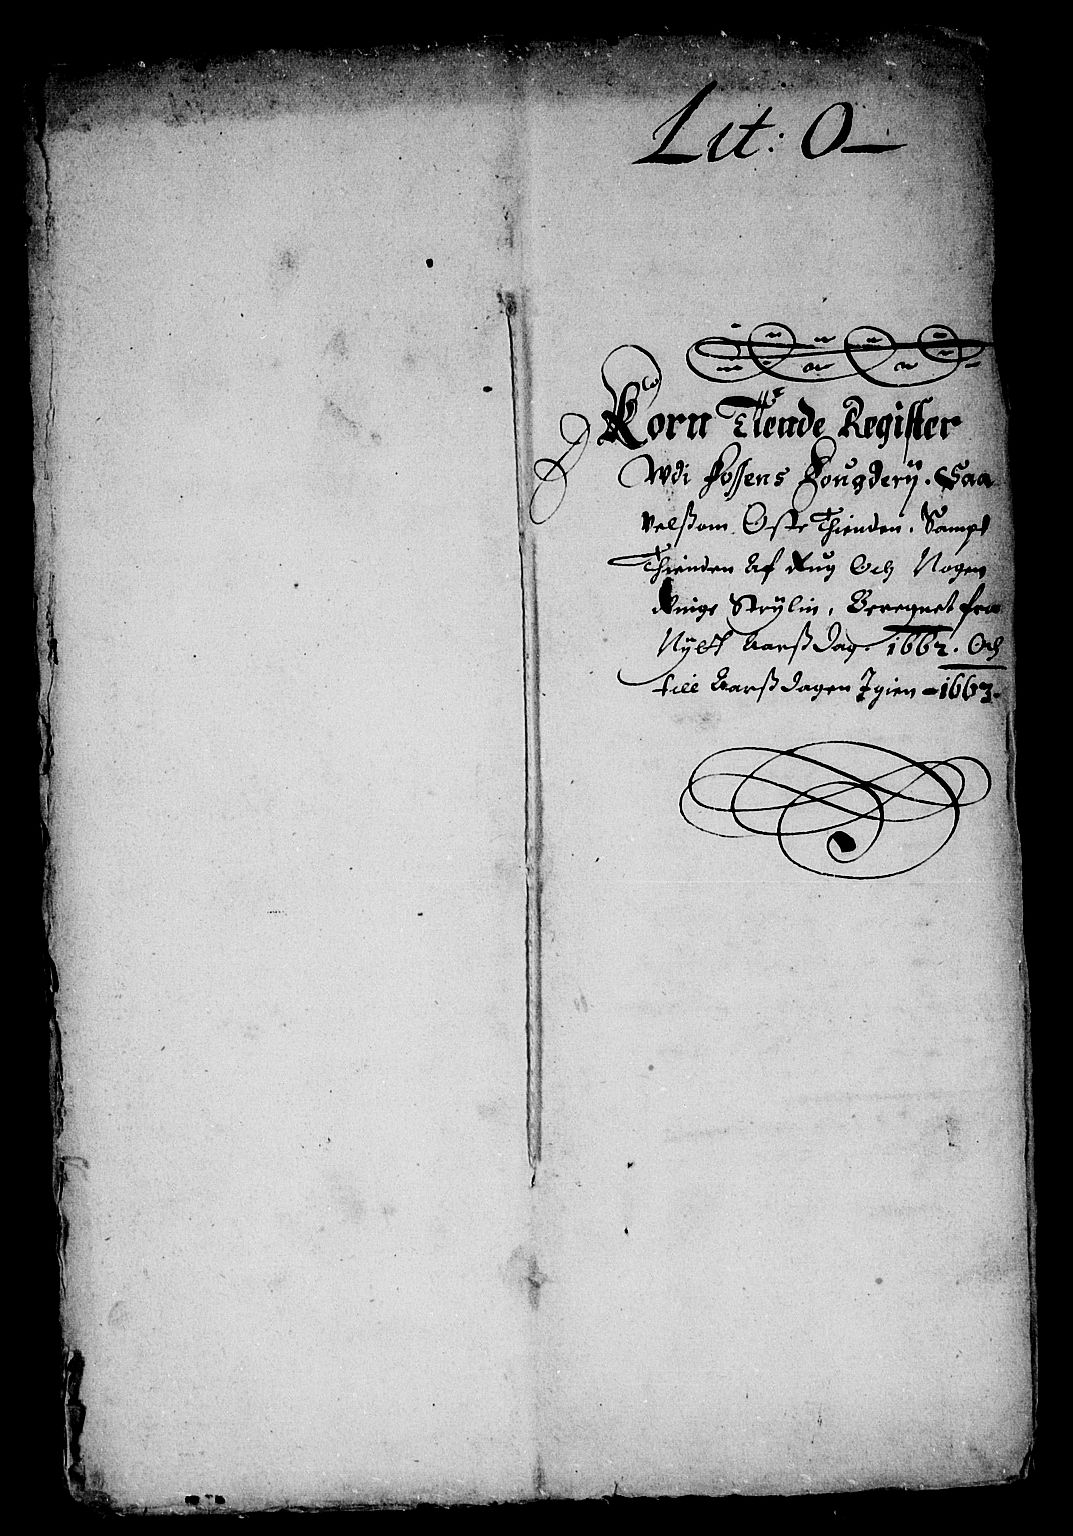 Lit: O
Korn Tiende Register
Wdi Fossens Fougderij. Saa
velsom Oste Thienden. Sampt
Thienden Af Rug Och Nogen
Ringe Erter, Beregnet fra
Nÿett Aarß dag. 1662. Och
till Aarß dagen Igien 1663.